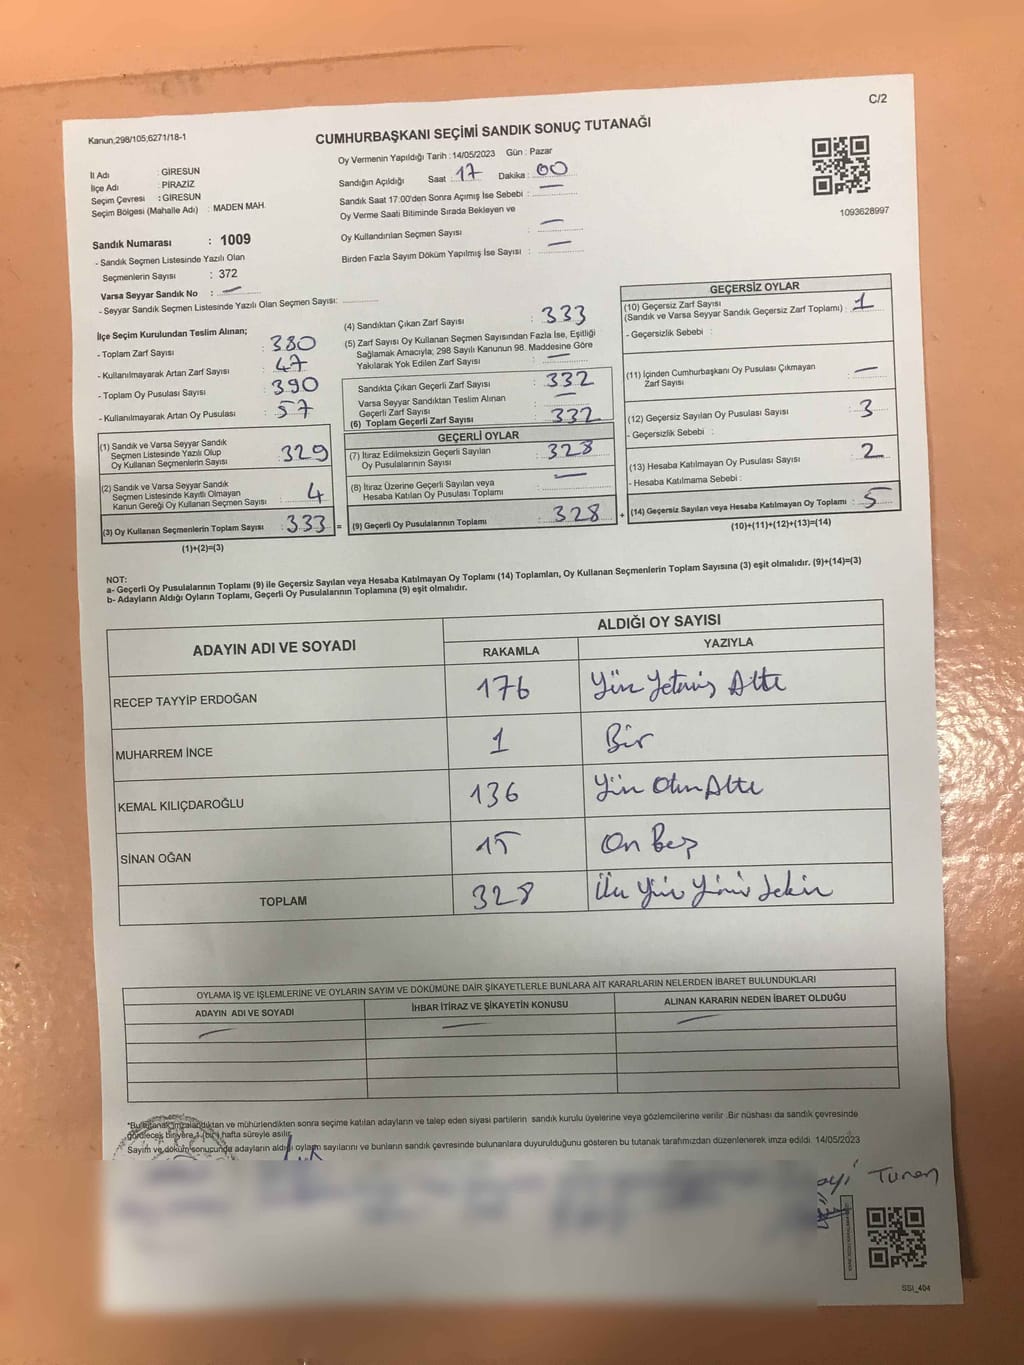 C/2
Kanun,298/105;6271/18-1
CUMHURBAŞKANI SEÇİMİ SANDIK SONUÇ TUTANAĞI
İl Adı : GİRESUN
İlçe Adı : PİRAZİZ
Seçim Çevresi : GİRESUN
Seçim Bölgesi (Mahalle Adı) : MADEN MAH.
Oy Vermenin Yapıldığı Tarih : 14/05/2023 Gün : Pazar
Sandığın Açıldığı Saat : 17 Dakika : 00
Sandık Saat 17:00'den Sonra Açılmış İse Sebebi : —
Oy Verme Saati Bitiminde Sırada Bekleyen ve
Oy Kullandırılan Seçmen Sayısı : —
Birden Fazla Sayım Döküm Yapılmış İse Sayısı : —
1093628997
Sandık Numarası : 1009
- Sandık Seçmen Listesinde Yazılı Olan
Seçmenlerin Sayısı : 372
Varsa Seyyar Sandık No : —
- Seyyar Sandık Seçmen Listesinde Yazılı Olan Seçmen Sayısı:
İlçe Seçim Kurulundan Teslim Alınan;
- Toplam Zarf Sayısı : 380
- Kullanılmayarak Artan Zarf Sayısı : 47
- Toplam Oy Pusulası Sayısı : 390
- Kullanılmayarak Artan Oy Pusulası : 57
(1) Sandık ve Varsa Seyyar Sandık
Seçmen Listesinde Yazılı Olup
Oy Kullanan Seçmenlerin Sayısı : 329
(2) Sandık ve Varsa Seyyar Sandık
Seçmen Listesinde Kayıtlı Olmayan
Kanun Gereği Oy Kullanan Seçmen Sayısı : 4
(3) Oy Kullanan Seçmenlerin Toplam Sayısı : 333 =
(1)+(2)=(3)
(4) Sandıktan Çıkan Zarf Sayısı : 333
(5) Zarf Sayısı Oy Kullanan Seçmen Sayısından Fazla İse, Eşitliği
Sağlamak Amacıyla; 298 Sayılı Kanunun 98. Maddesine Göre
Yakılarak Yok Edilen Zarf Sayısı : —
Sandıkta Çıkan Geçerli Zarf Sayısı : 332
Varsa Seyyar Sandıktan Teslim Alınan
Geçerli Zarf Sayısı : —
(6) Toplam Geçerli Zarf Sayısı : 332
GEÇERLİ OYLAR
(7) İtiraz Edilmeksizin Geçerli Sayılan
Oy Pusulalarının Sayısı : 328
(8) İtiraz Üzerine Geçerli Sayılan veya
Hesaba Katılan Oy Pusulası Toplamı : —
(9) Geçerli Oy Pusulalarının Toplamı : 328 +
GEÇERSİZ OYLAR
(10) Geçersiz Zarf Sayısı
(Sandık ve Varsa Seyyar Sandık Geçersiz Zarf Toplamı) : 1
- Geçersizlik Sebebi :
(11) İçinden Cumhurbaşkanı Oy Pusulası Çıkmayan
Zarf Sayısı : —
(12) Geçersiz Sayılan Oy Pusulası Sayısı : 3
- Geçersizlik Sebebi :
(13) Hesaba Katılmayan Oy Pusulası Sayısı : 2
- Hesaba Katılmama Sebebi :
(14) Geçersiz Sayılan veya Hesaba Katılmayan Oy Toplamı : 5
(10)+(11)+(12)+(13)=(14)
NOT:
a- Geçerli Oy Pusulalarının Toplamı (9) ile Geçersiz Sayılan veya Hesaba Katılmayan Oy Toplamı (14) Toplamları, Oy Kullanan Seçmenlerin Toplam Sayısına (3) eşit olmalıdır. (9)+(14)=(3)
b- Adayların Aldığı Oyların Toplamı, Geçerli Oy Pusulalarının Toplamına (9) eşit olmalıdır.
ADAYIN ADI VE SOYADI
ALDIĞI OY SAYISI
RAKAMLA YAZIYLA
RECEP TAYYİP ERDOĞAN 176 Yüz Yetmiş Altı
MUHARREM İNCE 1 Bir
KEMAL KILIÇDAROĞLU 136 Yüz Otuz Altı
SİNAN OĞAN 15 On Beş
TOPLAM 328 Üç Yüz Yirmi Sekiz
OYLAMA İŞ VE İŞLEMLERİNE VE OYLARIN SAYIM VE DÖKÜMÜNE DAİR ŞİKAYETLERLE BUNLARA AİT KARARLARIN NELERDEN İBARET BULUNDUKLARI
ADAYIN ADI VE SOYADI İHBAR İTİRAZ VE ŞİKAYETİN KONUSU ALINAN KARARIN NEDEN İBARET OLDUĞU
— — —
*Bu tutanak imzalandıktan ve mühürlendikten sonra seçime katılan adayların ve talep eden siyasi partilerin sandık kurulu üyelerine veya gözlemcilerine verilir .Bir nüshası da sandık çevresinde
görülecek bir yere 1 (bir) hafta süreyle asılır.
Sayım ve döküm sonucunda adayların aldığı oyların sayılarını ve bunların sandık çevresinde bulunanlara duyurulduğunu gösteren bu tutanak tarafımızdan düzenlenerek imza edildi. 14/05/2023
Turan
SSI_404